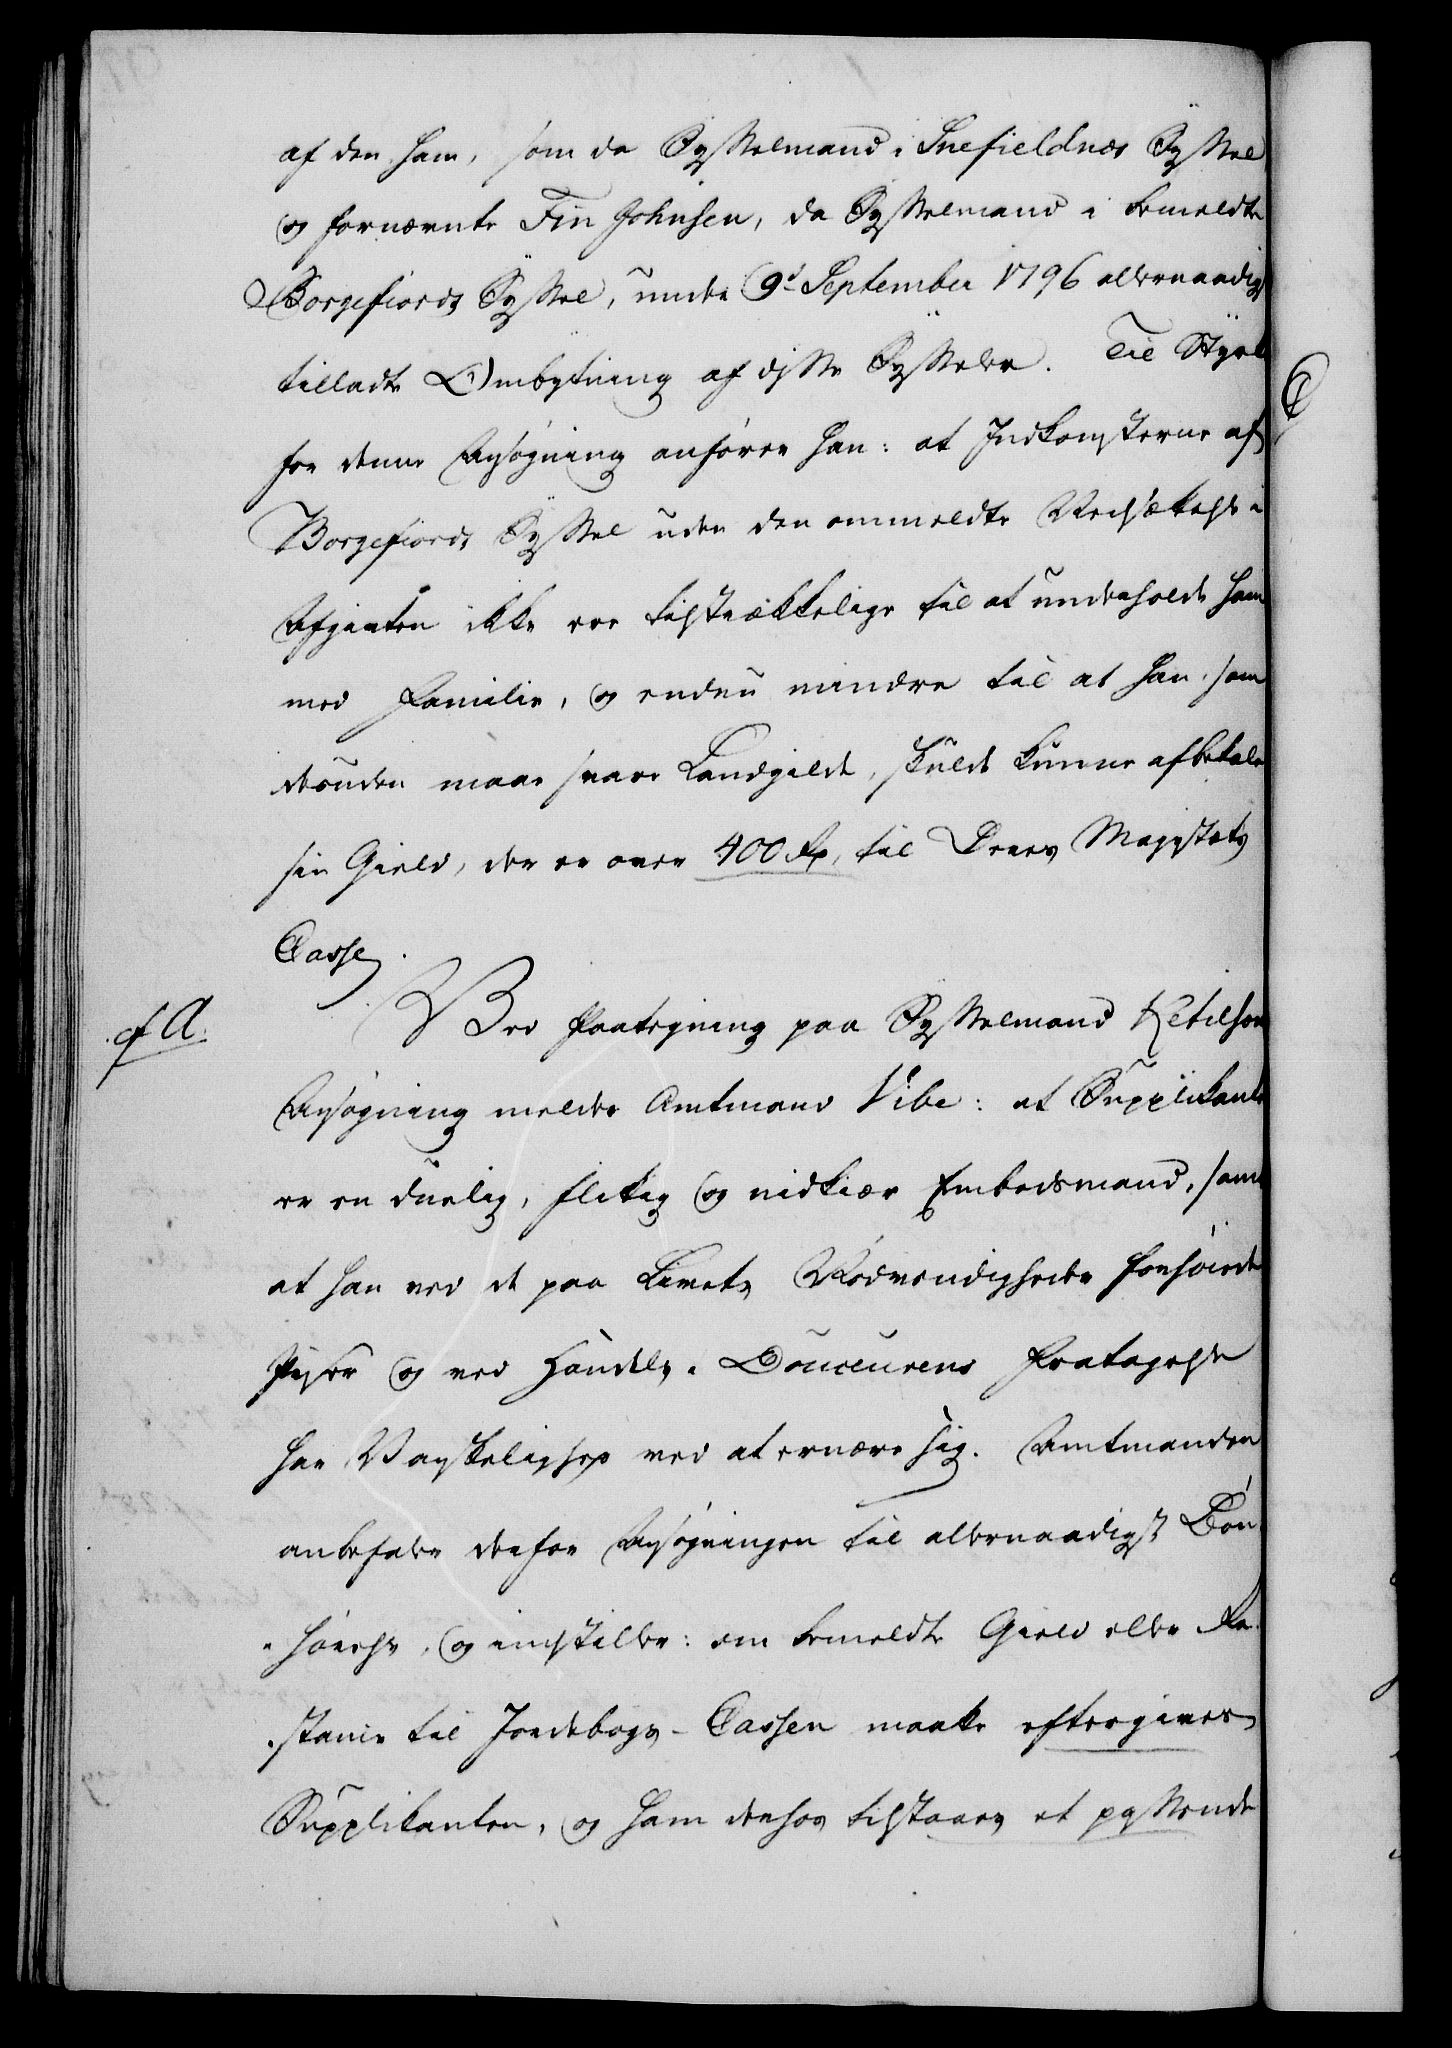 af den ham, som da Sysselmand i Snefieldnæs Syssel
og fornævnte Fin Johnsen, da Sysselmand i bemeldte
Borgefiords Syssel, under 9d September 1796 allernaadigst
tilladte Ombytning af disse Sysseler. Til Styrke
for denne Ansøgning anfører han: at Indkomsterne af
Borgefiords Syssel uden den ommeldte Nedsættelse i
Afgiften ikke ere tilstrækkelige til at underholde ham
med Familie, og endnu mindre til at han, som
desuden maae svare Landgilde, skulde kunne afbetale
sin Gield, der er over 400 Rd, til Deres Majestæts
Casse.
cf A.
Ved Paategning paa Sysselmand Ketilsons
Ansøgning melder Amtmand Vibe: at Supplikanten
er en duelig, flittig og nidkiær Embedsmand, samt
at han ved de paa Livets Nødvendigheder forhøiede
Priser og ved Handels-Douceurens Fratagelse
har Vanskelighed ved at ernære sig. Amtmanden
anbefaler derfor Ansøgningen til allernaadigst Bøn-
hørelse, og indstiller: om bemeldte Gield eller Re-
stance til Jordebogs-Cassen maatte eftergives
Supplikanten, og ham derhos tilstaaes et passende